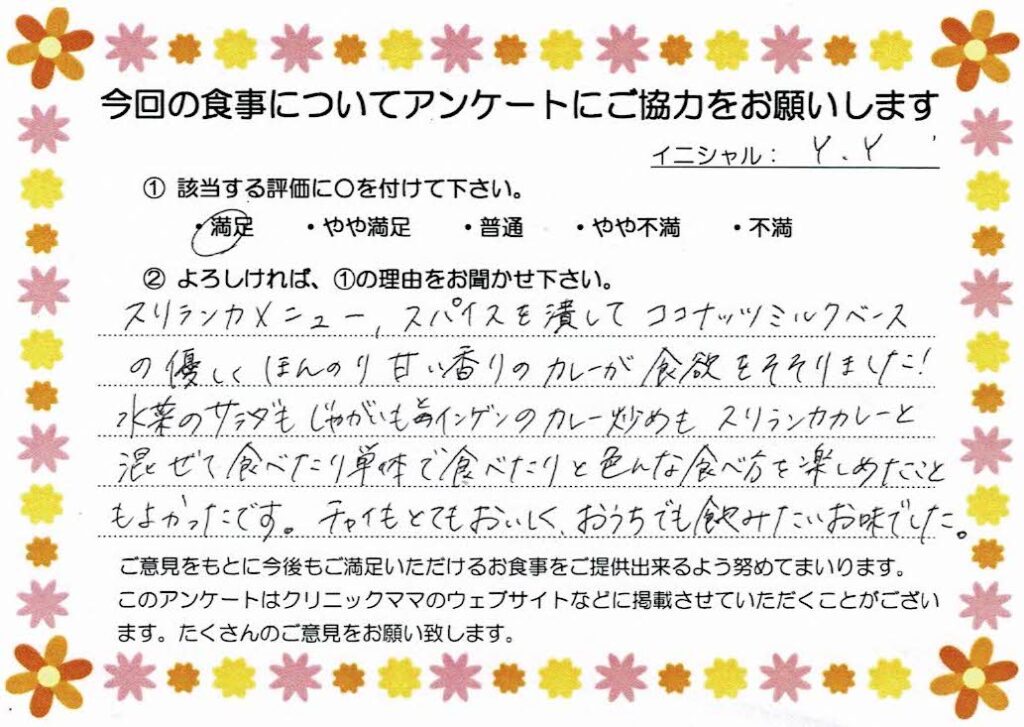 今回の食事についてアンケートにご協力をお願いします
イニシャル： Y.Y
① 該当する評価に〇を付けて下さい。
・満足 ・やや満足 ・普通 ・やや不満 ・不満
② よろしければ、①の理由をお聞かせ下さい。
スリランカメニュー、スパイスを潰してココナッツミルクベース
の優しくほんのり甘い香りのカレーが食欲をそそりました！
水菜のサラダもじゃがいもとインゲンのカレー炒めもスリランカカレーと
混ぜて食べたり単体で食べたりと色んな食べ方を楽しめたこと
もよかったです。チャイもとてもおいしく、おうちでも飲みたいお味でした。
ご意見をもとに今後もご満足いただけるお食事をご提供出来るよう努めてまいります。
このアンケートはクリニックママのウェブサイトなどに掲載させていただくことがござい
ます。たくさんのご意見をお願い致します。